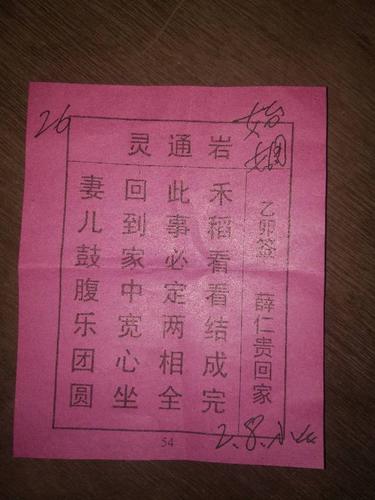 26
婚姻
灵通岩
乙卯签 薛仁贵回家
禾稻看看结成完
此事必定两相全
回到家中宽心坐
妻儿鼓腹乐团圆
54
2.8.